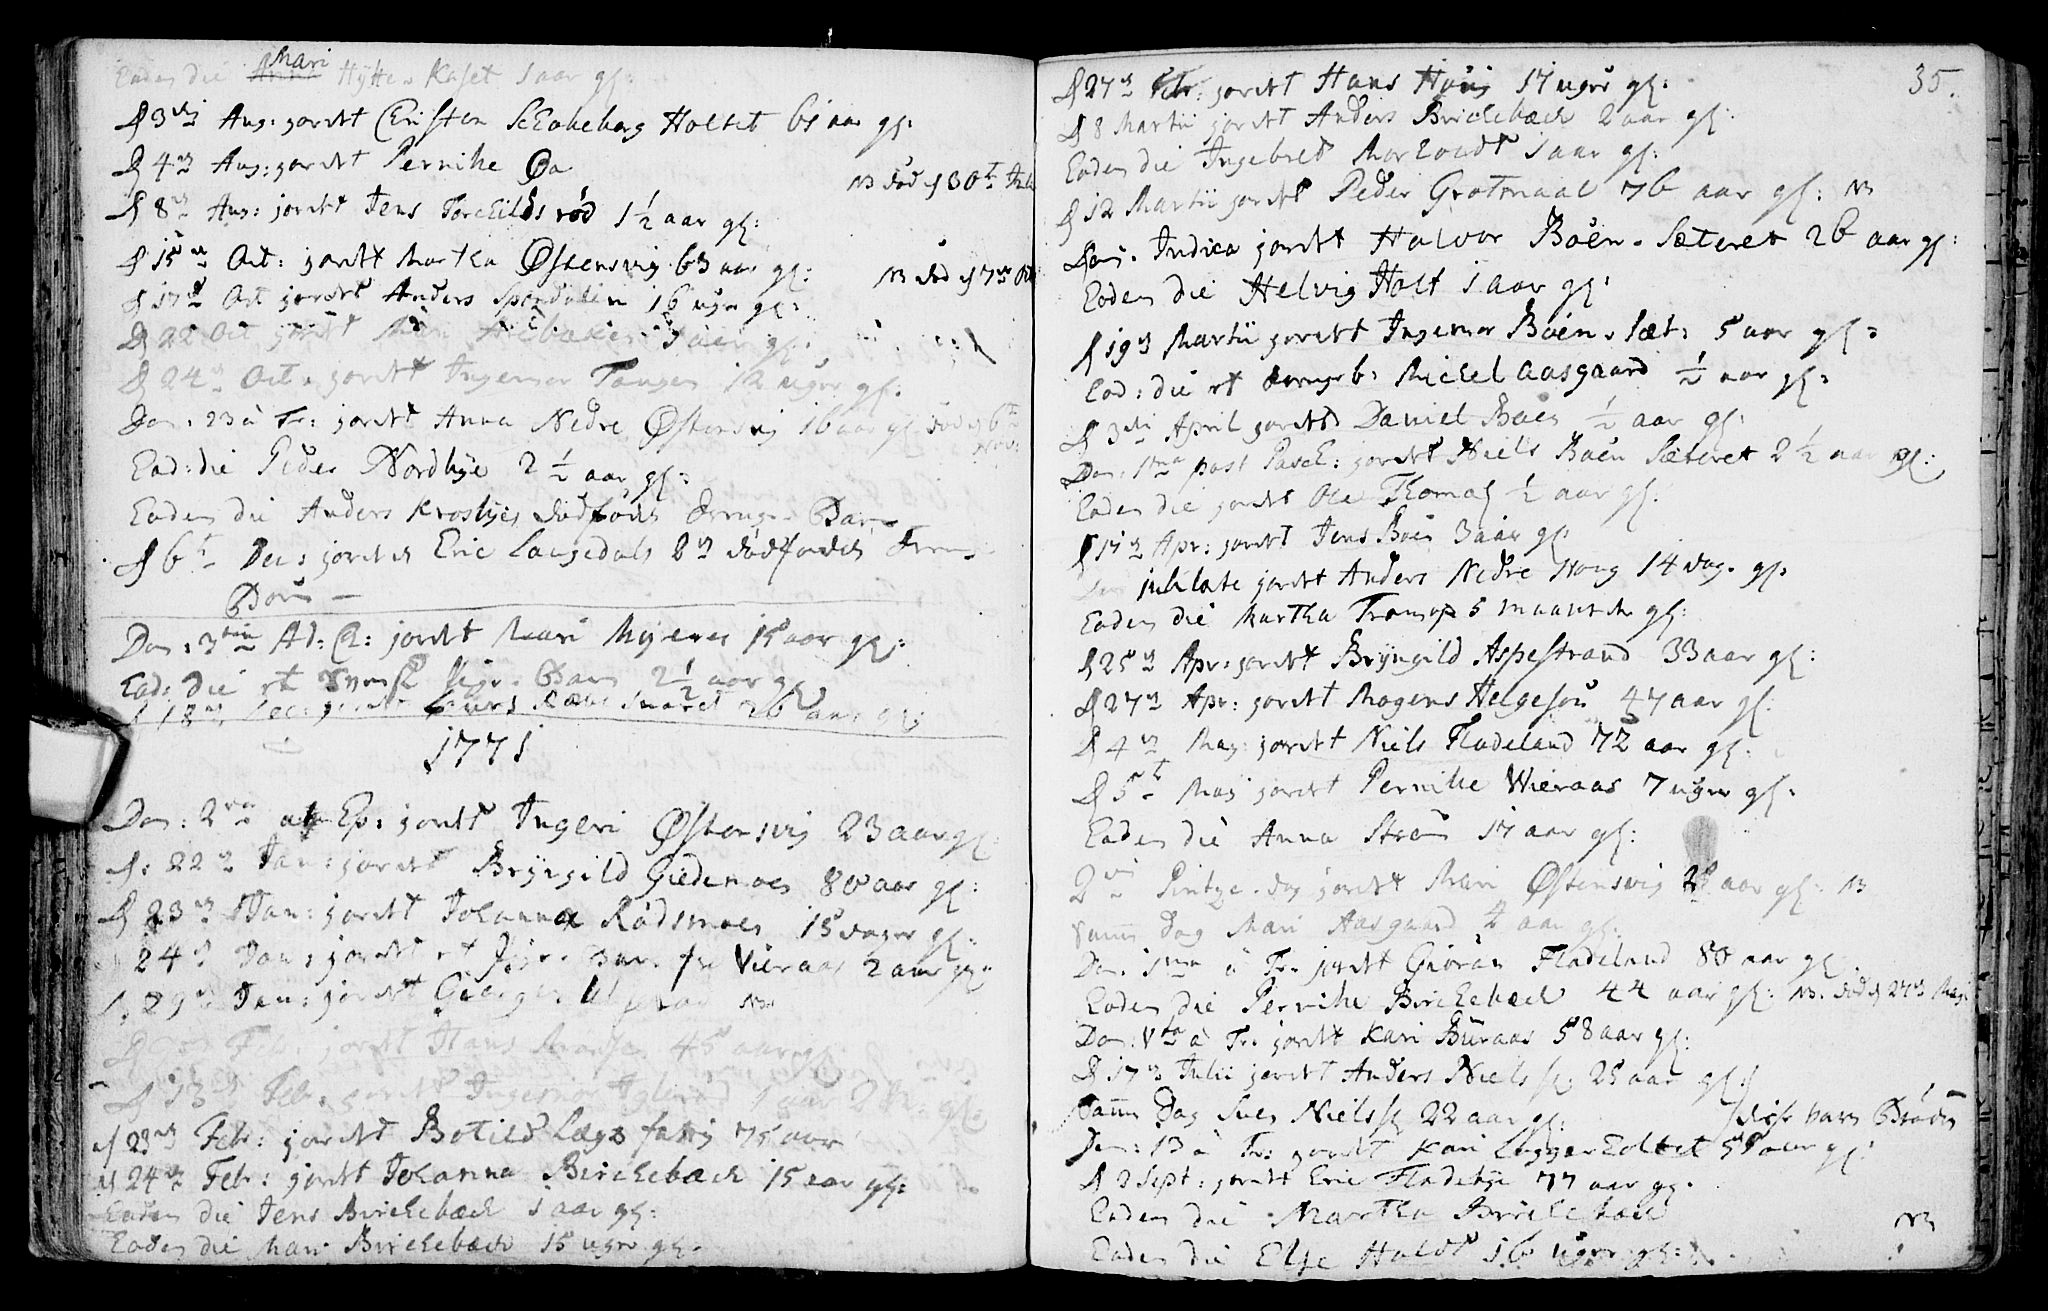 Eodem die Mari Hytte-Kaset 1 aar gl:
d 3die Aug: jordet Christen Holtet 61 aar gl:
d 4de Aug: jordet Pernike Øa
NB død d 30t Juli
d 8de Aug: jordet Jens Torchildsrød 1½ aar gl:
d 15de Oct: jordet Martha Østensvig 63 aar gl:
NB død d 7de Oct
d 17de Oct jordet Anders Spondalen 16 uger gl:
d 22 Oct jordet
d 24de Oct: jordet Ingemor Tangen 12 uger gl:
Dom: 23 à Tr: jordet Anna Nedre Østensvig 16 aar gl død d 6te Nov:
Eod: die Peder Nordbye 2½ aar gl:
Eodem die Anders Krosbyes dødfødt Drenge-Barn
d 6t Dec: jordet Eric Langedals 2de dødfødde Drenge-
Børn
Dom: 3tia Ad: C: jordet Mari Myrenes 15 aar gl:
Eod: die et Pige-Barn 2½ aar gl
d 18de Dec: jordet Lars 26 aar gl:
1771
Dom: 2da p Ep: jordet Ingeri Østensvig 23 aar gl:
d: 22de Jan: jordet Bryngild Giedemoes 80 aar gl:
d 23de Jan: jordet Johanna Rødsmoen 15 dager gl:
24de Jan: jordet et Pige-Barn fra Vieraas 2 aar gl:
d: 29de Jan: jordet NB
Feb: jordet Hans 45 aar gl:
d 13de Feb: jordet Ingemor 1 aar
d 23de Febr: jordet Botild 75 aar
d 24de Febr: jordet Johanna Birchebæch 15 aar gl:
Eodem die Jens Birchebæch 1 aar gl:
Eodem die Mari Birchebæch 15 uger gl:
35.
d 27de Febr: jordet Hans Houg 17 uger gl:
d 8 Martii jordet Anders Birchebæch 2 aar gl:
Eodem die Ingebret 1 aar gl:
d 12 Martii jordet Peder Grotmaal 76 aar gl: NB
Dom: Judica jordet Halvor Boen-Sæteret 26 aar gl:
Eodem die Helvig Holt 1 aar gl:
d 19de Martii jordet Ingemor Boen-Sæt: 5 aar gl:
Eod: die et drengeb: Michel Aasgaard ½ aar gl:
d 3die April jordet Daniel Boen ½ aar gl:
Dom: 1ma post Pasch: jordet Niels Boen Sæteret 2½ aar gl:
Eodem die jordet Ole Thomas ½ aar gl:
d 17de Apr: jordet Jens Boen 3 aar gl:
Dom jubilate jordet Anders Nedre Houg 14 dag. gl:
Eodem die Martha Tromop 5 maaneder gl:
d 25de Apr: jordet Bryngild Aspestrand 33 aar gl:
d 27de Apr: jordet Mogens Helgesøn 47 aar gl:
d 4de May: jordet Niels Fladeland 72 aar gl:
d 5t May jordet Pernike Wieraas 7 uger gl:
Eodem die Anna Strøm 17 aar gl:
2den Pintze-dag jordet Mari Østensvig 28 aar gl: NB
samme Dag Mari Aasgaard 2 aar gl:
Dom: 1ma à Tr: jordet Giøran Fladeland 80 aar gl
Eodem die Pernike Birchebæch 44 aar gl: NB. død d 27de May
Dom: Vta à Tr: jordet Kari Buraas 58 aar gl:
d 17de Julii jordet Anders Niels s: 25 aar gl:
samme Dag Sven Nielss 22 aar gl: disse vare Brødre
Dom: 13 à Tr: jordet Kari 55 aar gl:
d 2 Sept: jordet Eric Fladebye 77 aar gl.
Eodem die Martha Birchebæch
NB
Eodem die Else Holdt 16 uger gl: